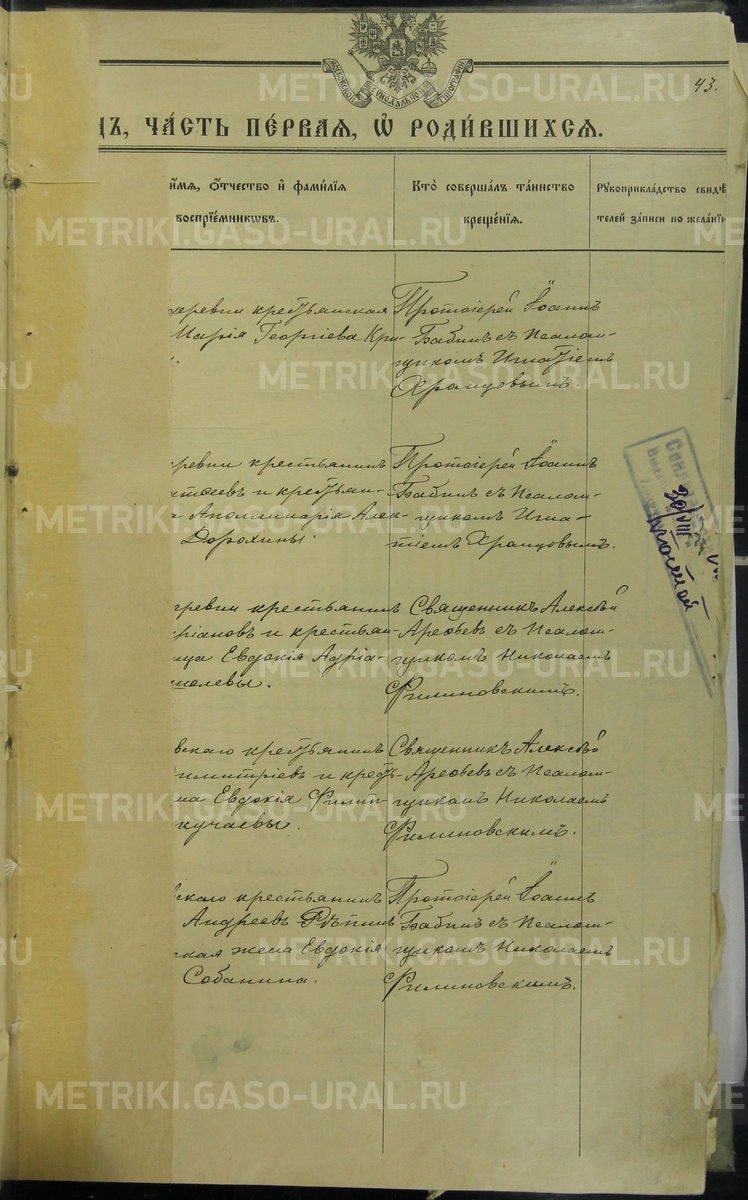 43.
ЦЪ, ЧА́СТЬ ПЕ́РВАЯ, Ѿ РОДИ́ВШИХСЯ.
И́МЯ, О́ТЧЕСТВО И ФАМИ́ЛІЯ
ВОСПРІЕ́МНИКѠВЪ.
КТО̀ СОВЕРША́ЛЪ ТА́ИНСТВО
КРЕЩЕ́НІЯ.
РУКОПРИКЛА́ДСТВО СВИДѢ́
ТЕЛЕЙ ЗА́ПИСИ ПО ЖЕЛА́НІЮ
деревни крестьянская
Марія Георгіева Кри-
Протоіерей Іоаннъ
Бабинъ съ Псалом-
щикомъ Игнатіемъ
Храмцовымъ.
ревни крестьянинъ
и крестьян-
Аполлинарія Алек-
Дорохины.
Протоіерей Іоаннъ
Бабинъ съ Псалом-
щикомъ Игна-
тіемъ Храмцовымъ.
ревни крестьянинъ
ріановъ и крестьян-
ица Евдокія Адріа-
шелевы.
Священникъ Алексѣй
Арефьевъ съ Псалом-
щикомъ Николаемъ
Филиновскимъ.
вскаго крестьянинъ
Димитріевъ и кресть-
на Евдокія Филип-
кучаевы.
Священникъ Алексѣй
Арефьевъ съ Псалом-
щикомъ Николаемъ
Филиновскимъ.
скаго крестьянинъ
Андреевъ Рѣпинъ
ская жена Евдокія
Собанина.
Протоіерей Іоаннъ
Бабинъ съ Псалом-
щикомъ Николаемъ
Филиновскимъ.
METRIKI.GASO-URAL.RU
METRIKI.GASO-URAL.RU
METRIKI.GASO-URAL.RU
METRIKI.GASO-URAL.RU
METRIKI.GASO-URAL.RU
METRIKI.GASO-URAL.RU
METRIKI.GASO-URAL.RU
METRIKI.GASO-URAL.RU